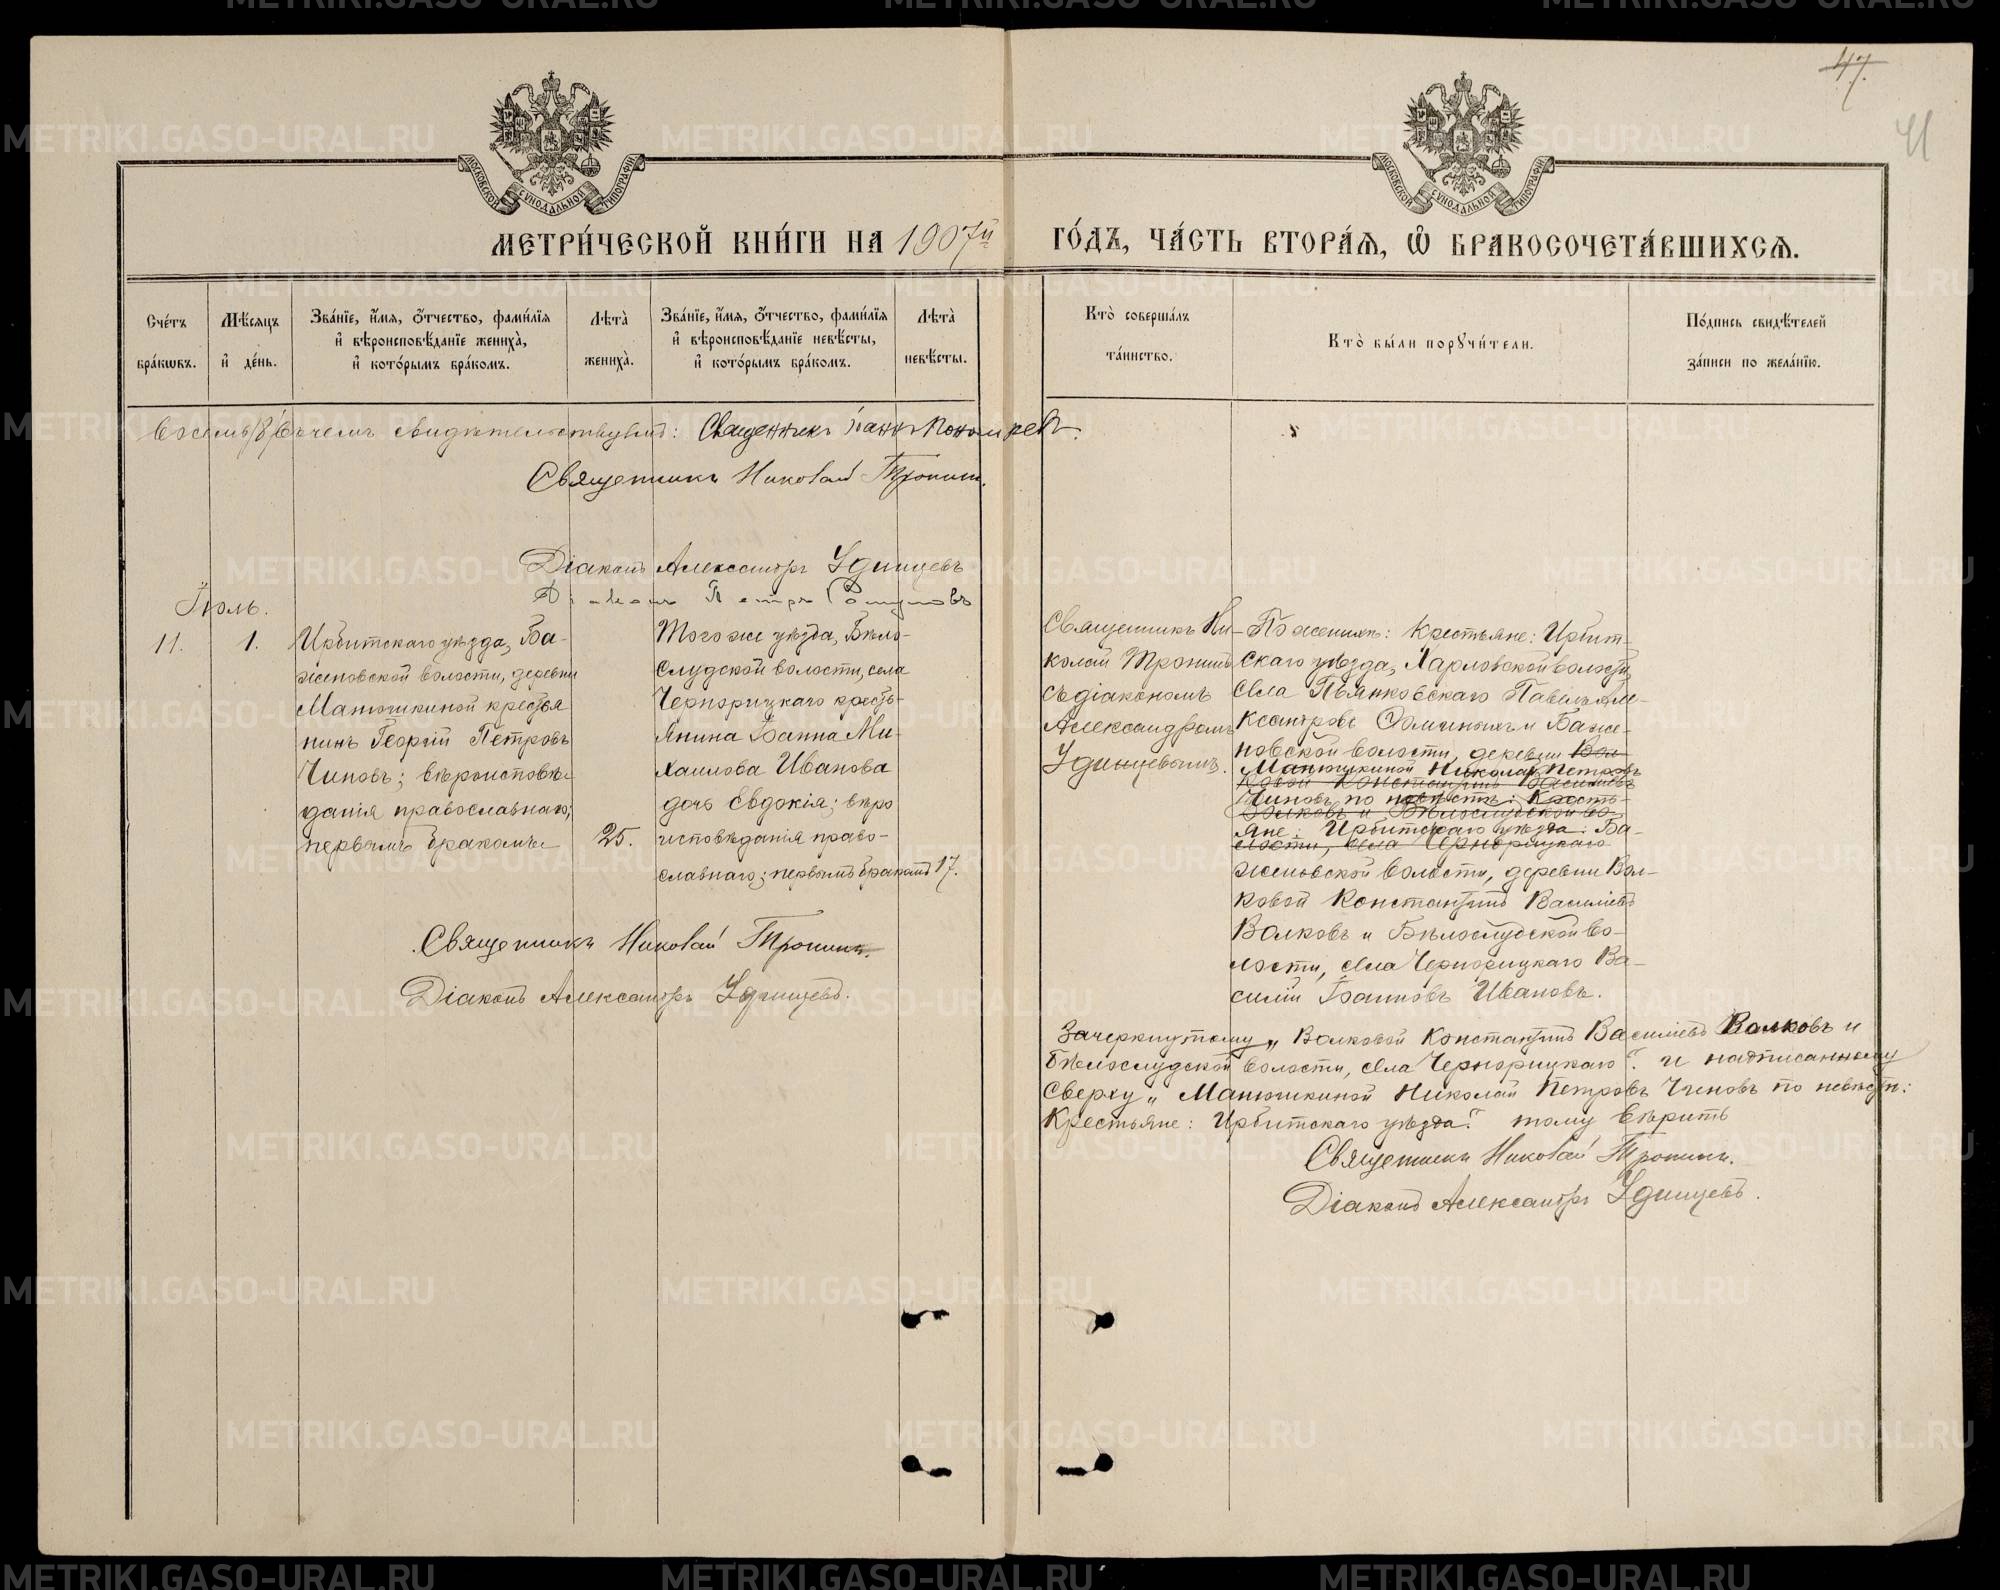 47.
41
МОСКОВСКОЙ СѴНОДАЛЬНОЙ ТИПОГРАФІИ
МОСКОВСКОЙ СѴНОДАЛЬНОЙ ТИПОГРАФІИ
МЕТРИ́ЧЕСКОЙ КНИ́ГИ НА 1907й
ГО́ДЪ, ЧА́СТЬ ВТОРА́Я, Ѽ БРАКОСОЧЕТА́ВШИХСЯ.
Сче́тъ бра́кѡвъ.
Мѣ́сяцъ и҆ де́нь.
Зва́нїе, и҆́мя, ѻ҆́тчество, фами́лїя и҆ вѣроисповѣ́данїе жениха̀, и҆ кото́рымъ бра́комъ.
Лѣта̀ жениха̀.
Зва́нїе, и҆́мя, ѻ҆́тчество, фами́лїя и҆ вѣроисповѣ́данїе невѣ́сты, и҆ кото́рымъ бра́комъ.
Лѣта̀ невѣ́сты.
Кто̀ соверша́лъ та́инство.
Кто̀ бы́ли порꙋчи́тели.
По́дпись свидѣ́телей за́писи по жела́нїю.
Восемь /8/ въ чемъ свидѣтельствуютъ: Священникъ Іоаннъ Пономаревъ.
Священникъ Николай Тронинъ.
Діаконъ Александръ Удинцевъ
Діаконъ Петръ
Іюль.
11.
1.
Ирбитскаго уѣзда, Ба-
женовской волости, деревни
Манюшкиной крестья
нинъ Георгій Петровъ
Чиновъ; вѣроисповѣ-
данія православнаго;
первымъ бракомъ
25.
Того же уѣзда, Бѣло-
слудской волости, села
Чернорицкаго кресть-
янина Іоанна Ми-
хаилова Иванова
дочь Евдокія; вѣро
исповѣданія право-
славнаго; первымъ бракомъ
17.
Священникъ Николай Тронинъ.
Діаконъ Александръ Удинцевъ.
Священникъ Ни-
колай Тронинъ
съ діакономъ
Александромъ
Удинцевымъ.
По женихѣ: Крестьяне: Ирбит-
скаго уѣзда, Харловской волости,
села Пьянковскаго Павелъ Але-
ксандровъ и Баже-
новской волости, деревни Вол-
Манюшкиной Николай Петровъ
ковой Константинъ Василіевъ
Чиновъ по невѣстѣ: Кресть-
Волковъ и Бѣлослудской во-
яне: Ирбитскаго уѣзда: Ба-
лости, села Чернорицкаго
женовской волости, деревни Вол-
ковой Константинъ Василіевъ
Волковъ и Бѣлослудской во-
лости, села Чернорицкаго Ва-
силій Іоанновъ Ивановъ.
Зачеркнутому „Волковой Константинъ Василіевъ Волковъ и
Бѣлослудской волости, села Чернорицкаго“ и надписанному
сверху „Манюшкиной Николай Петровъ Чиновъ по невѣстѣ:
Крестьяне: Ирбитскаго уѣзда“ тому вѣрить
Священникъ Николай Тронинъ.
Діаконъ Александръ Удинцевъ.
METRIKI.GASO-URAL.RU